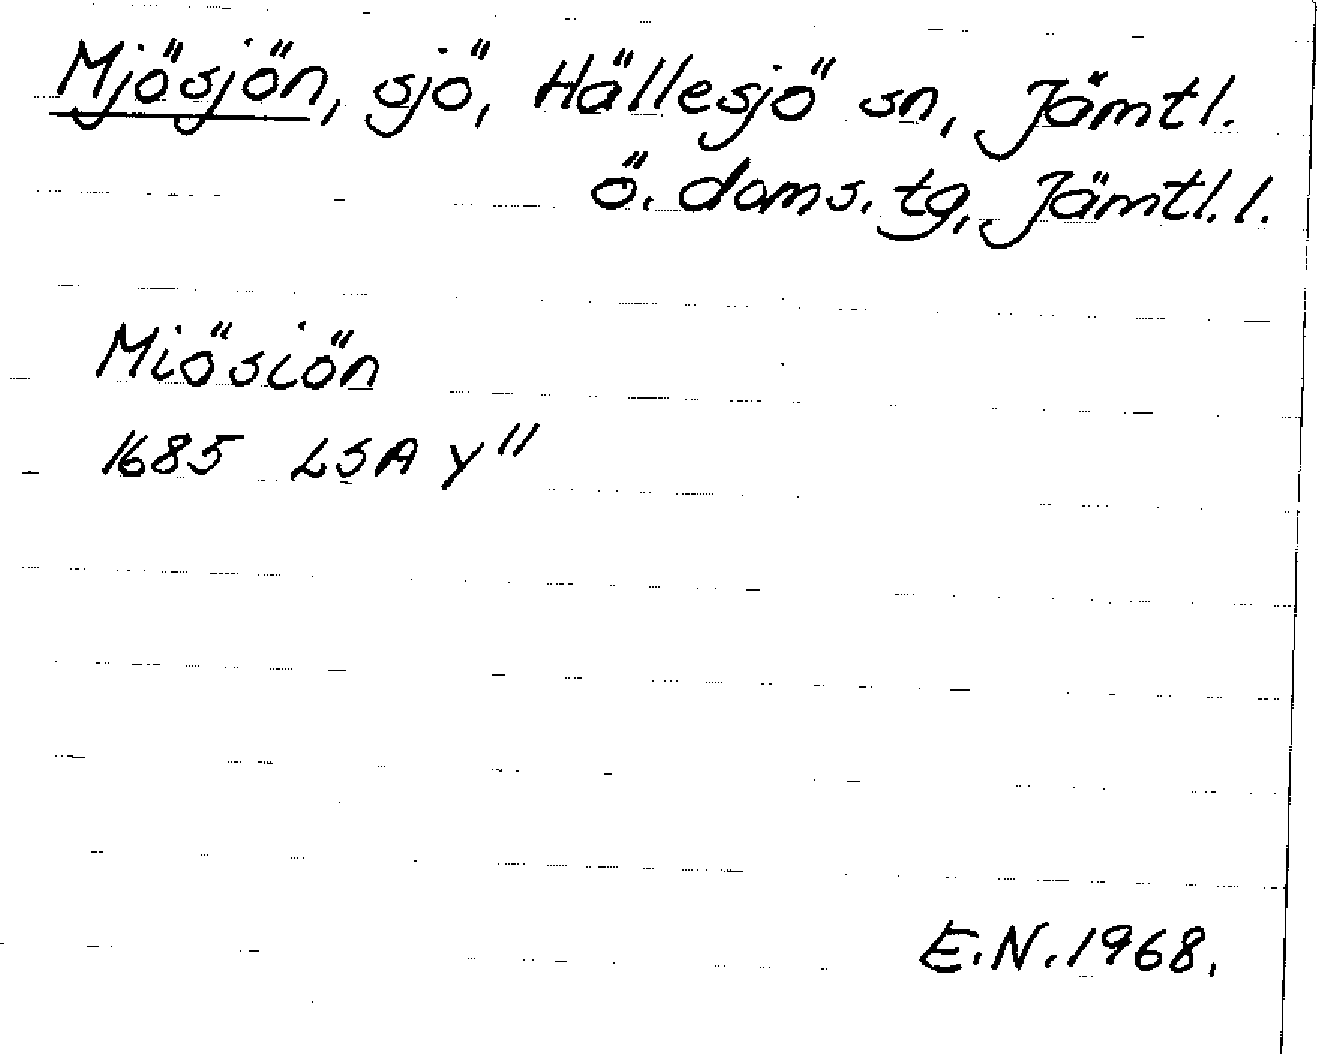 Mjösjön, sjö, Hällesjö sn, Jämtl.
ö. doms. tg, Jämtl. l.
Miösiön
1685 LSA Y"
E.N. 1968.